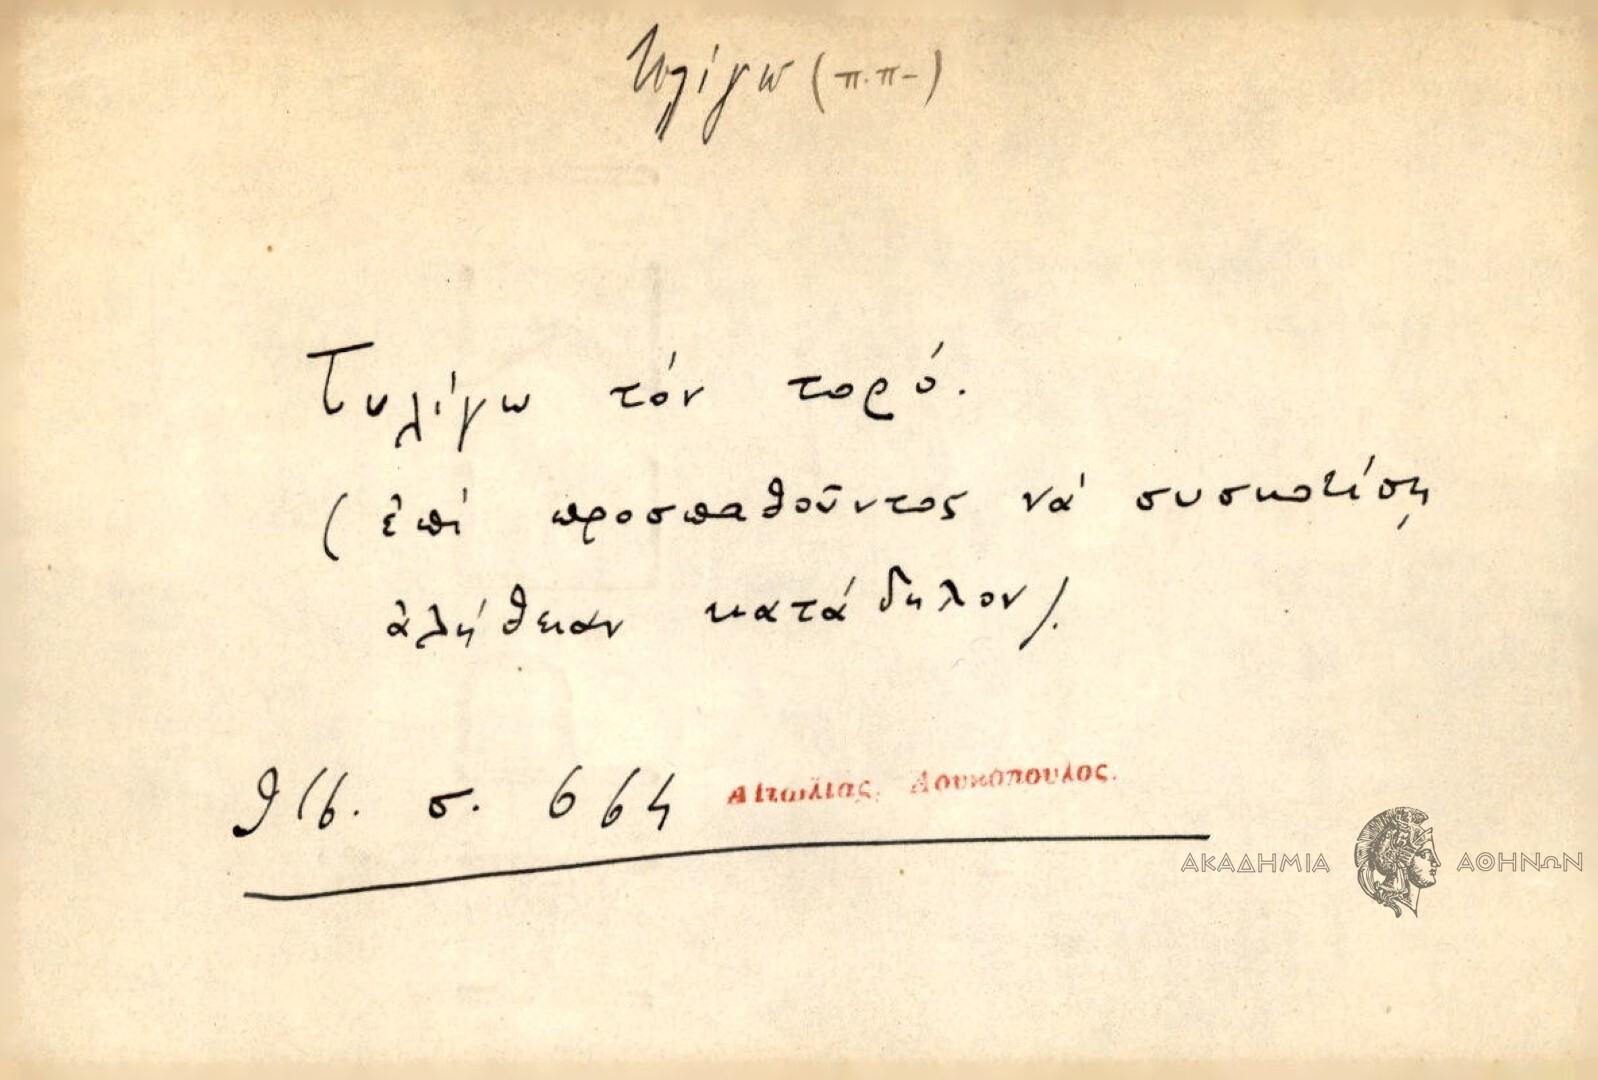 τυλίγω (π.π-)
Τυλίγω τόν τορό.
(ἐπί προσπαθοῦντος νά συσκοτίσῃ
ἀλήθειαν κατάδηλον).
916. σ. 664 Αἰτωλίας, Λουκόπουλος.
ΑΚΑΔΗΜΙΑ ΑΘΗΝΩΝ